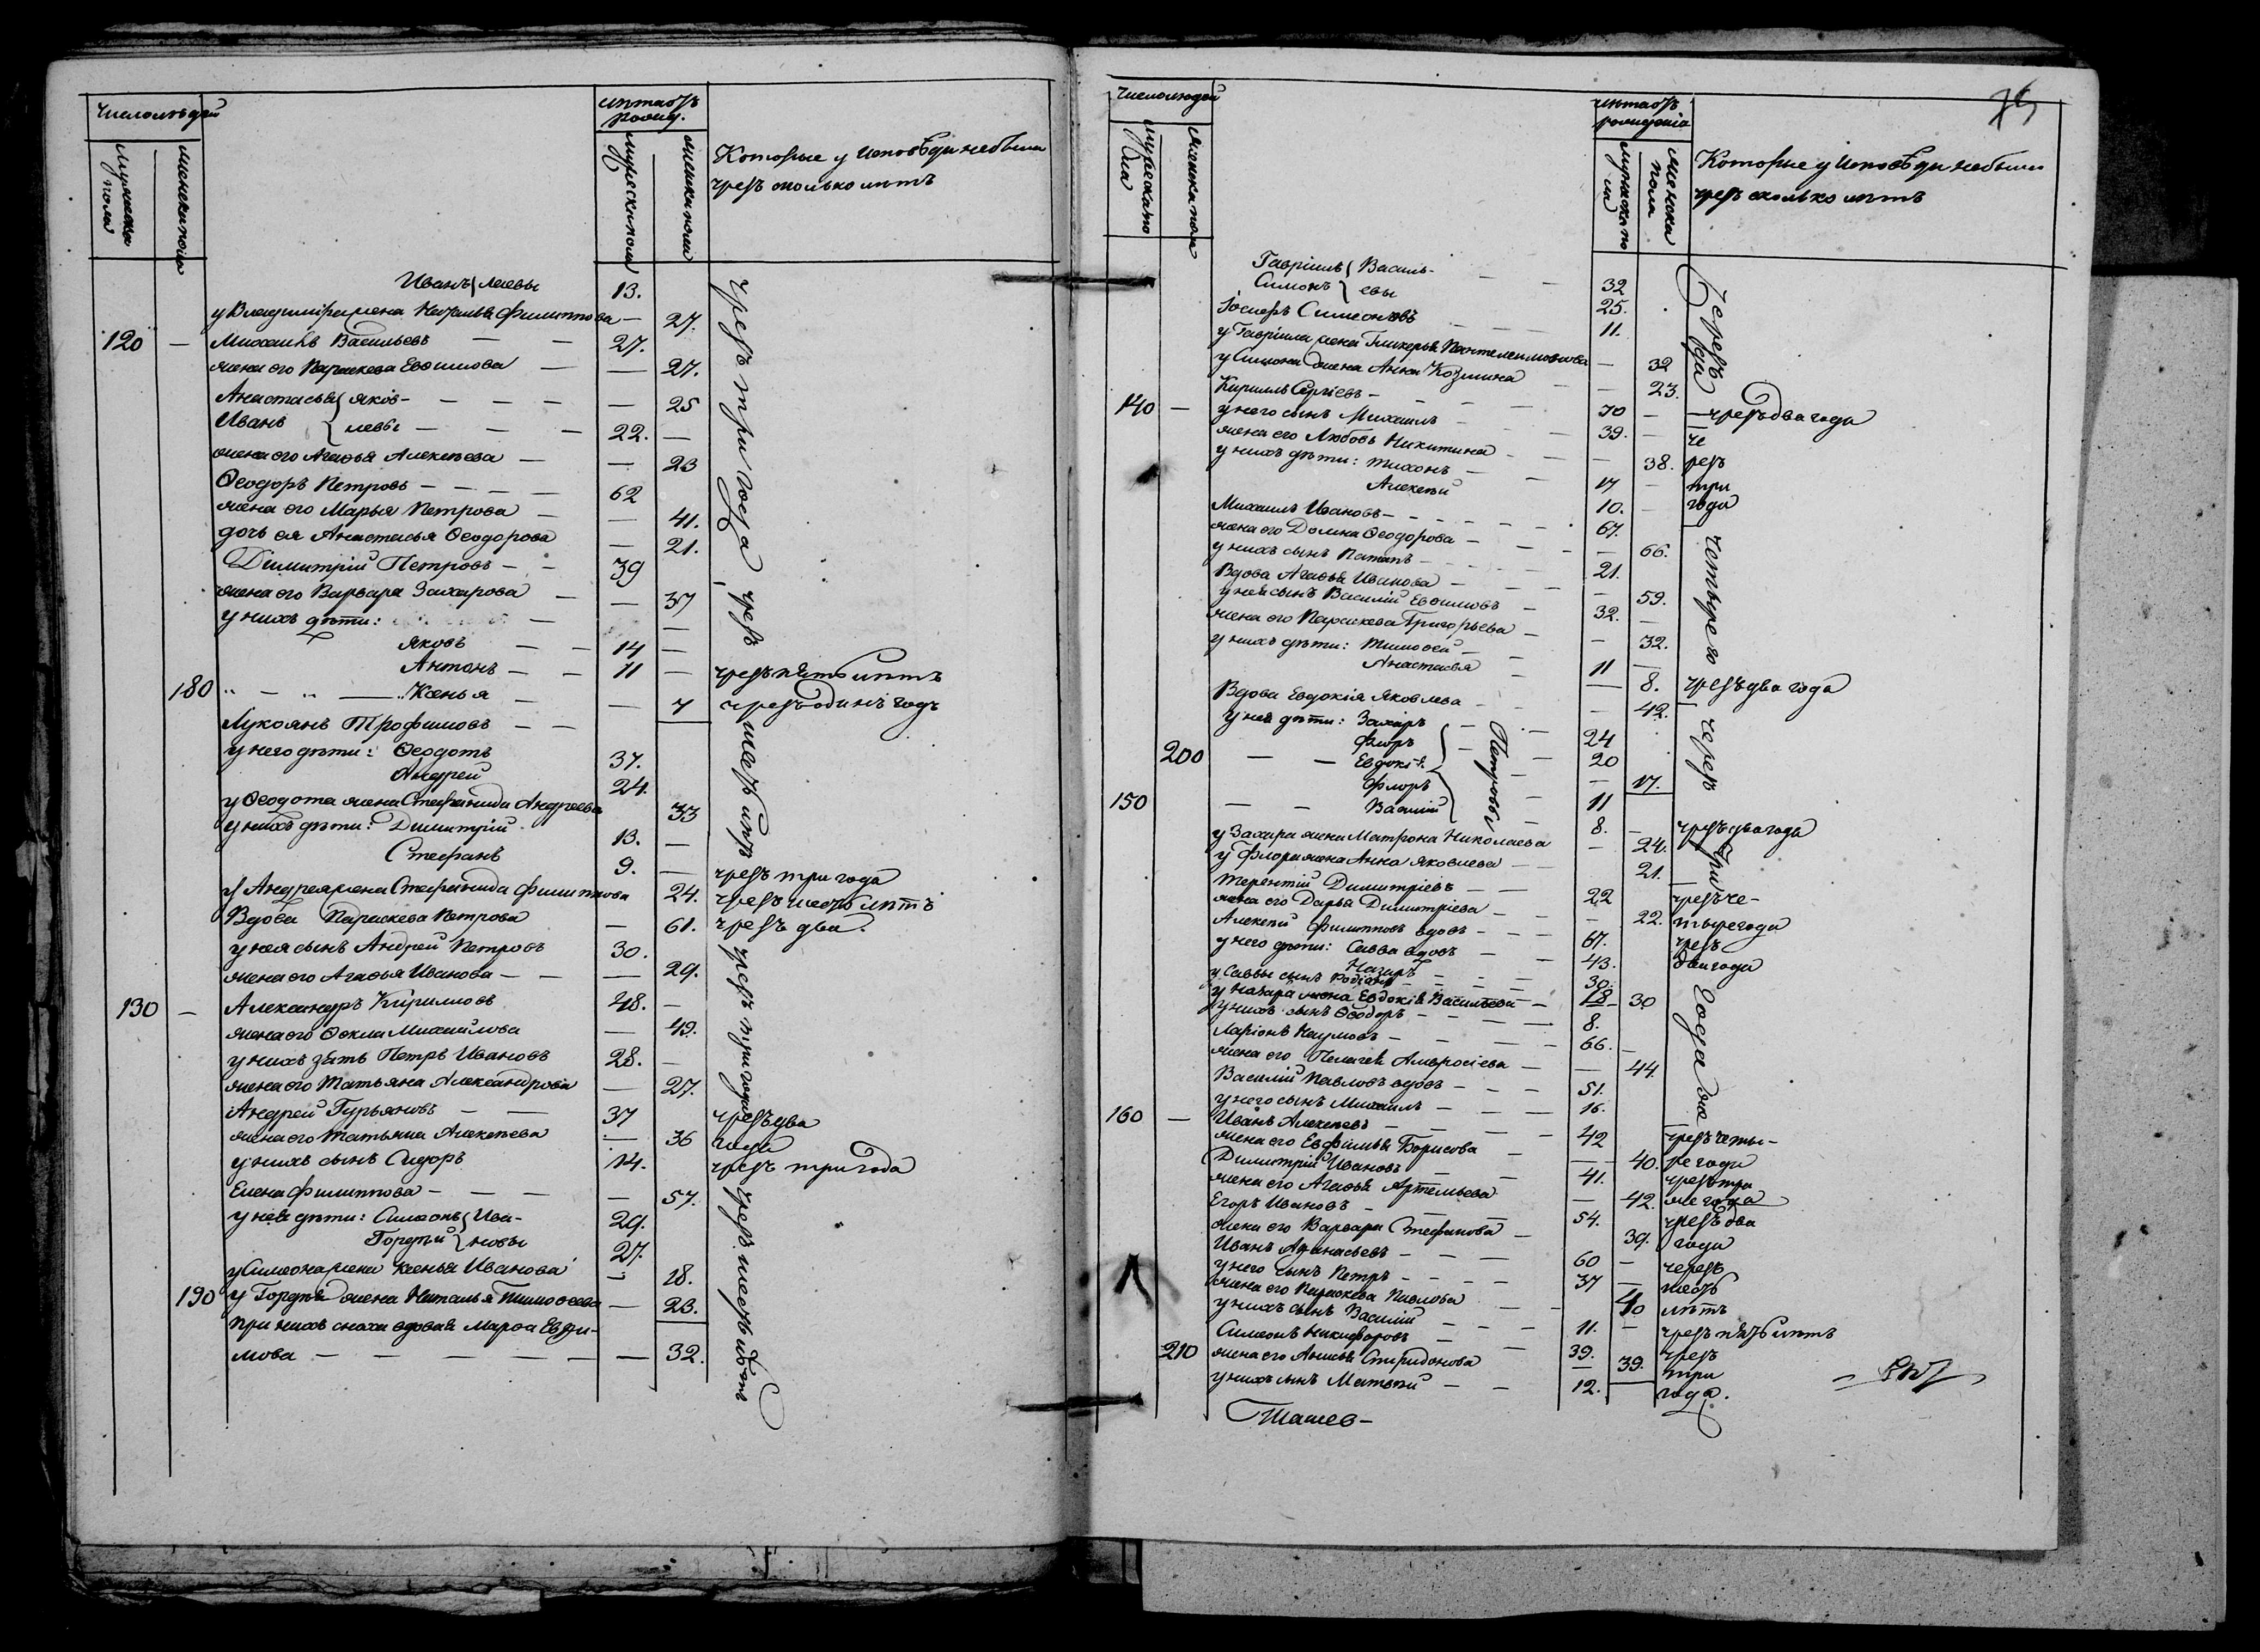 Число людей
лѣта отъ рожд.
мужеска пола
женска пола
мужеска пола
женска пола
Которые у Исповѣди небыли
чрезъ сколько лѣтъ
Иванъ } левы 13.
у Владиміра жена Наталья Филиппова — 27.
120 — Михаилъ Васильевъ — — 27.
жена его Параскева Евѳимова — — 27.
Анастасья } Яков- — — — — 25
Иванъ } левы — — — 22. —
жена его Агаѳья Алексѣева — — 23
Ѳеодоръ Петровъ — — — — 62
жена его Марья Петрова — — 41.
дочь ея Анастасья Ѳеодорова — 21.
чрезъ три года
Димитрій Петровъ — — 39
жена его Варвара Захарова — — 37
у нихъ дѣти: — —
Яковъ — — 14 —
чрезъ
Антонъ — — 11 — чрезъ пять лѣтъ
180 " — " — " Ксенья — — 7 чрезъ одинъ годъ
Лукоянъ Трофимовъ — —
у него дѣти: Ѳеодотъ 37.
Андрей 24.
у Ѳеодота жена Стефанида Андреева 33
у нихъ дѣти: Димитрій 13. —
Стефанъ 9. — чрезъ три года
у Андрея жена Стефанида Филиппова 24. чрезъ шесть лѣтъ
Вдова Параскева Петрова — 61. чрезъ два.
у нея сынъ Андрей Петровъ 30.
жена его Агаѳья Иванова — — — 29.
130 — Александръ Кириловъ 48. —
жена его Ѳекла Михаилова — 49.
у нихъ зять Петръ Ивановъ 28. —
жена его Татьяна Александрова — 27.
чрезъ три года
Андрей Гурьяновъ — — 37 чрезъ два
жена его Татьяна Алексѣева — 36 года
у нихъ сынъ Сидоръ 14. чрезъ три года
Елена Филиппова — — — — 57.
у нея дѣти: Симеонъ } Ива- 29.
Гордѣй } новы 27.
у Симеона жена Ксенья Иванова — 28.
190 у Гордѣя жена Наталья Тимоѳеева — 23.
при нихъ сноха вдовая Марѳа Евѳи-
мова — — — — — — 32.
чрезъ шесть лѣтъ
75
Число людей
лѣта отъ рожденія
мужеска по
ла
женска пола
мужеска по
ла
женска
пола
Которые у Исповѣди небыли
чрезъ сколько лѣтъ
Гавріилъ } Василь- — — 32
Симонъ } евы 25.
Іосифъ Симеоновъ — — — 11.
у Гавріила жена Гликерья Пантелеимонова — 32
у Симона жена Анна Козмина — — 23.
140 — Кириллъ Сергіевъ — — — 70 — — чрезъ два года
у него сынъ Михаилъ — — 39. — че
жена его Любовь Никитина — — — 38. резъ
у нихъ дѣти: Тихонъ — — 17 — три
Алексѣй 10. — года
Михаилъ Ивановъ — — — — 67.
жена его Домна Ѳеодорова — — — — 66.
у нихъ сынъ Потапъ — — — — 21.
Вдова Агаѳья Иванова — — — 59.
у нея сынъ Василій Евѳимовъ — 32. —
жена его Параскева Григорьева — — 32.
у нихъ дѣти: Тимоѳей — — 11 —
Анастасья — 8. чрезъ два года
Вдова Евдокія Яковлева — — — 42.
у нея дѣти: Захаръ — — 24
Флоръ — 20
200 — — Евдокія — — 17.
Флоръ — 11
150 — — Василій — 8. — чрезъ два года
Петровы
чрезъ
у Захара жена Матрона Николаева — 24.
у Флора жена Анна Яковлева — — 21.
три
Терентій Димитріевъ — — 22 — чрезъ че-
жена его Дарья Димитріева — — — 22. тыре года
Алексѣй Филипповъ вдовъ — — — 67. чрезъ
у него дѣти: Савва вдовъ — — 43. два года
Назаръ — — — 30.
у Саввы сынъ Родіонъ — — — 18
у Назара жена Евдокія Васильева — 30
у нихъ сынъ Ѳеодоръ — — — — 8.
Ларіонъ Наумовъ — — — — 66. —
жена его Пелагея Амвросіева — — 44.
Василій Павловъ вдовъ — — — 51.
у него сынъ Михаилъ — — — 16.
160 — Иванъ Алексѣевъ — — — — 42 чрезъ четы-
жена его Евфимья Борисова — — 40. ре года
Димитрій Ивановъ — — — 41. чрезъ три
жена его Агаѳья Артемьева — 42. же года
Егоръ Ивановъ — — — — 54. чрезъ два
жена его Варвара Стефанова — 39. года
Иванъ Аѳанасьевъ — — — 60 — чрезъ
у него сынъ Петръ — — — — 37 — шесть
жена его Параскева Павлова — — 40 лѣтъ
у нихъ сынъ Василій — — — 11. — чрезъ пять лѣтъ
Симеонъ Никифоровъ — — 39. чрезъ
210 жена его Анисья Спиридонова — 39. три
у нихъ сынъ Матвѣй — — 12. года.